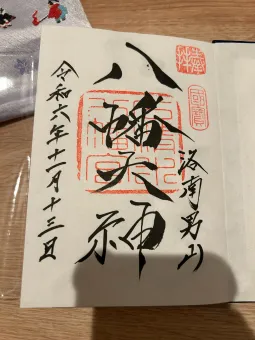 奉拝
國寶
洛南男山
八幡大神
令和六年十一月十三日